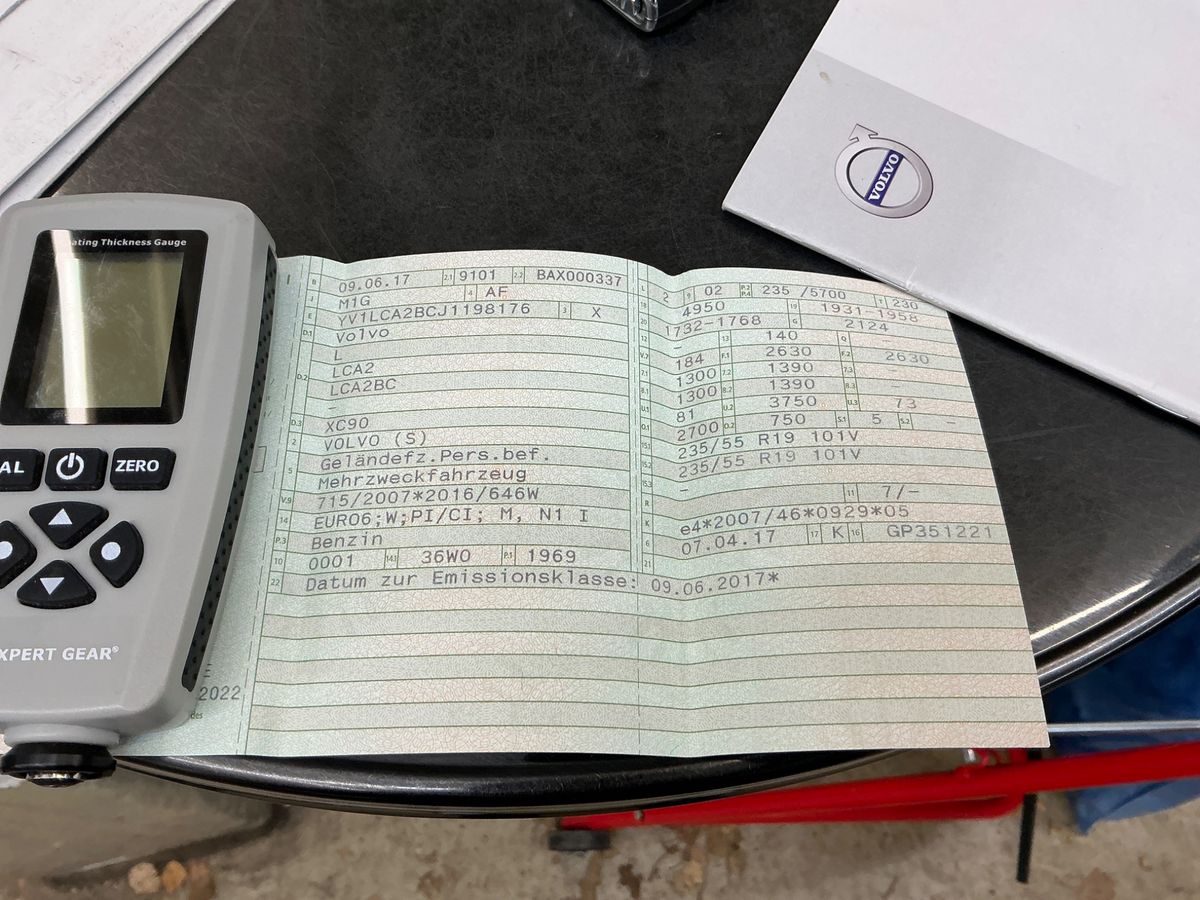 VOLVO
ating Thickness Gauge
AL
ZERO
XPERT GEAR®
2022
des
B 09.06.17 2.1 9101 2.2 BAX000337
J M1G 4 AF
E YV1LCA2BCJ1198176 3 X
D.1 Volvo
L
LCA2
D.2 LCA2BC
-
D.3 XC90
2 VOLVO (S)
5 Geländefz.Pers.bef.
Mehrzweckfahrzeug
V.9 715/2007*2016/646W
14 EURO6;W;PI/CI; M, N1 I
P.3 Benzin
10 0001 14.1 36W0 P.1 1969
22 Datum zur Emissionsklasse: 09.06.2017*
L 2 9 02 P.2 P.4 235 /5700 T 230
18 4950 19 1931-1958
20 1732-1768 G 2124
12 - 13 140 Q -
V.7 184 F.1 2630 F.2 2630
7.1 1300 7.2 1390 7.3 -
8.1 1300 8.2 1390 8.3 -
U.1 81 U.2 3750 U.3 73
O.1 2700 O.2 750 S.1 5 S.2 -
15.1 235/55 R19 101V
15.2 235/55 R19 101V
15.3 -
R 11 7/-
K e4*2007/46*0929*05
6 07.04.17 17 K 16 GP351221
21